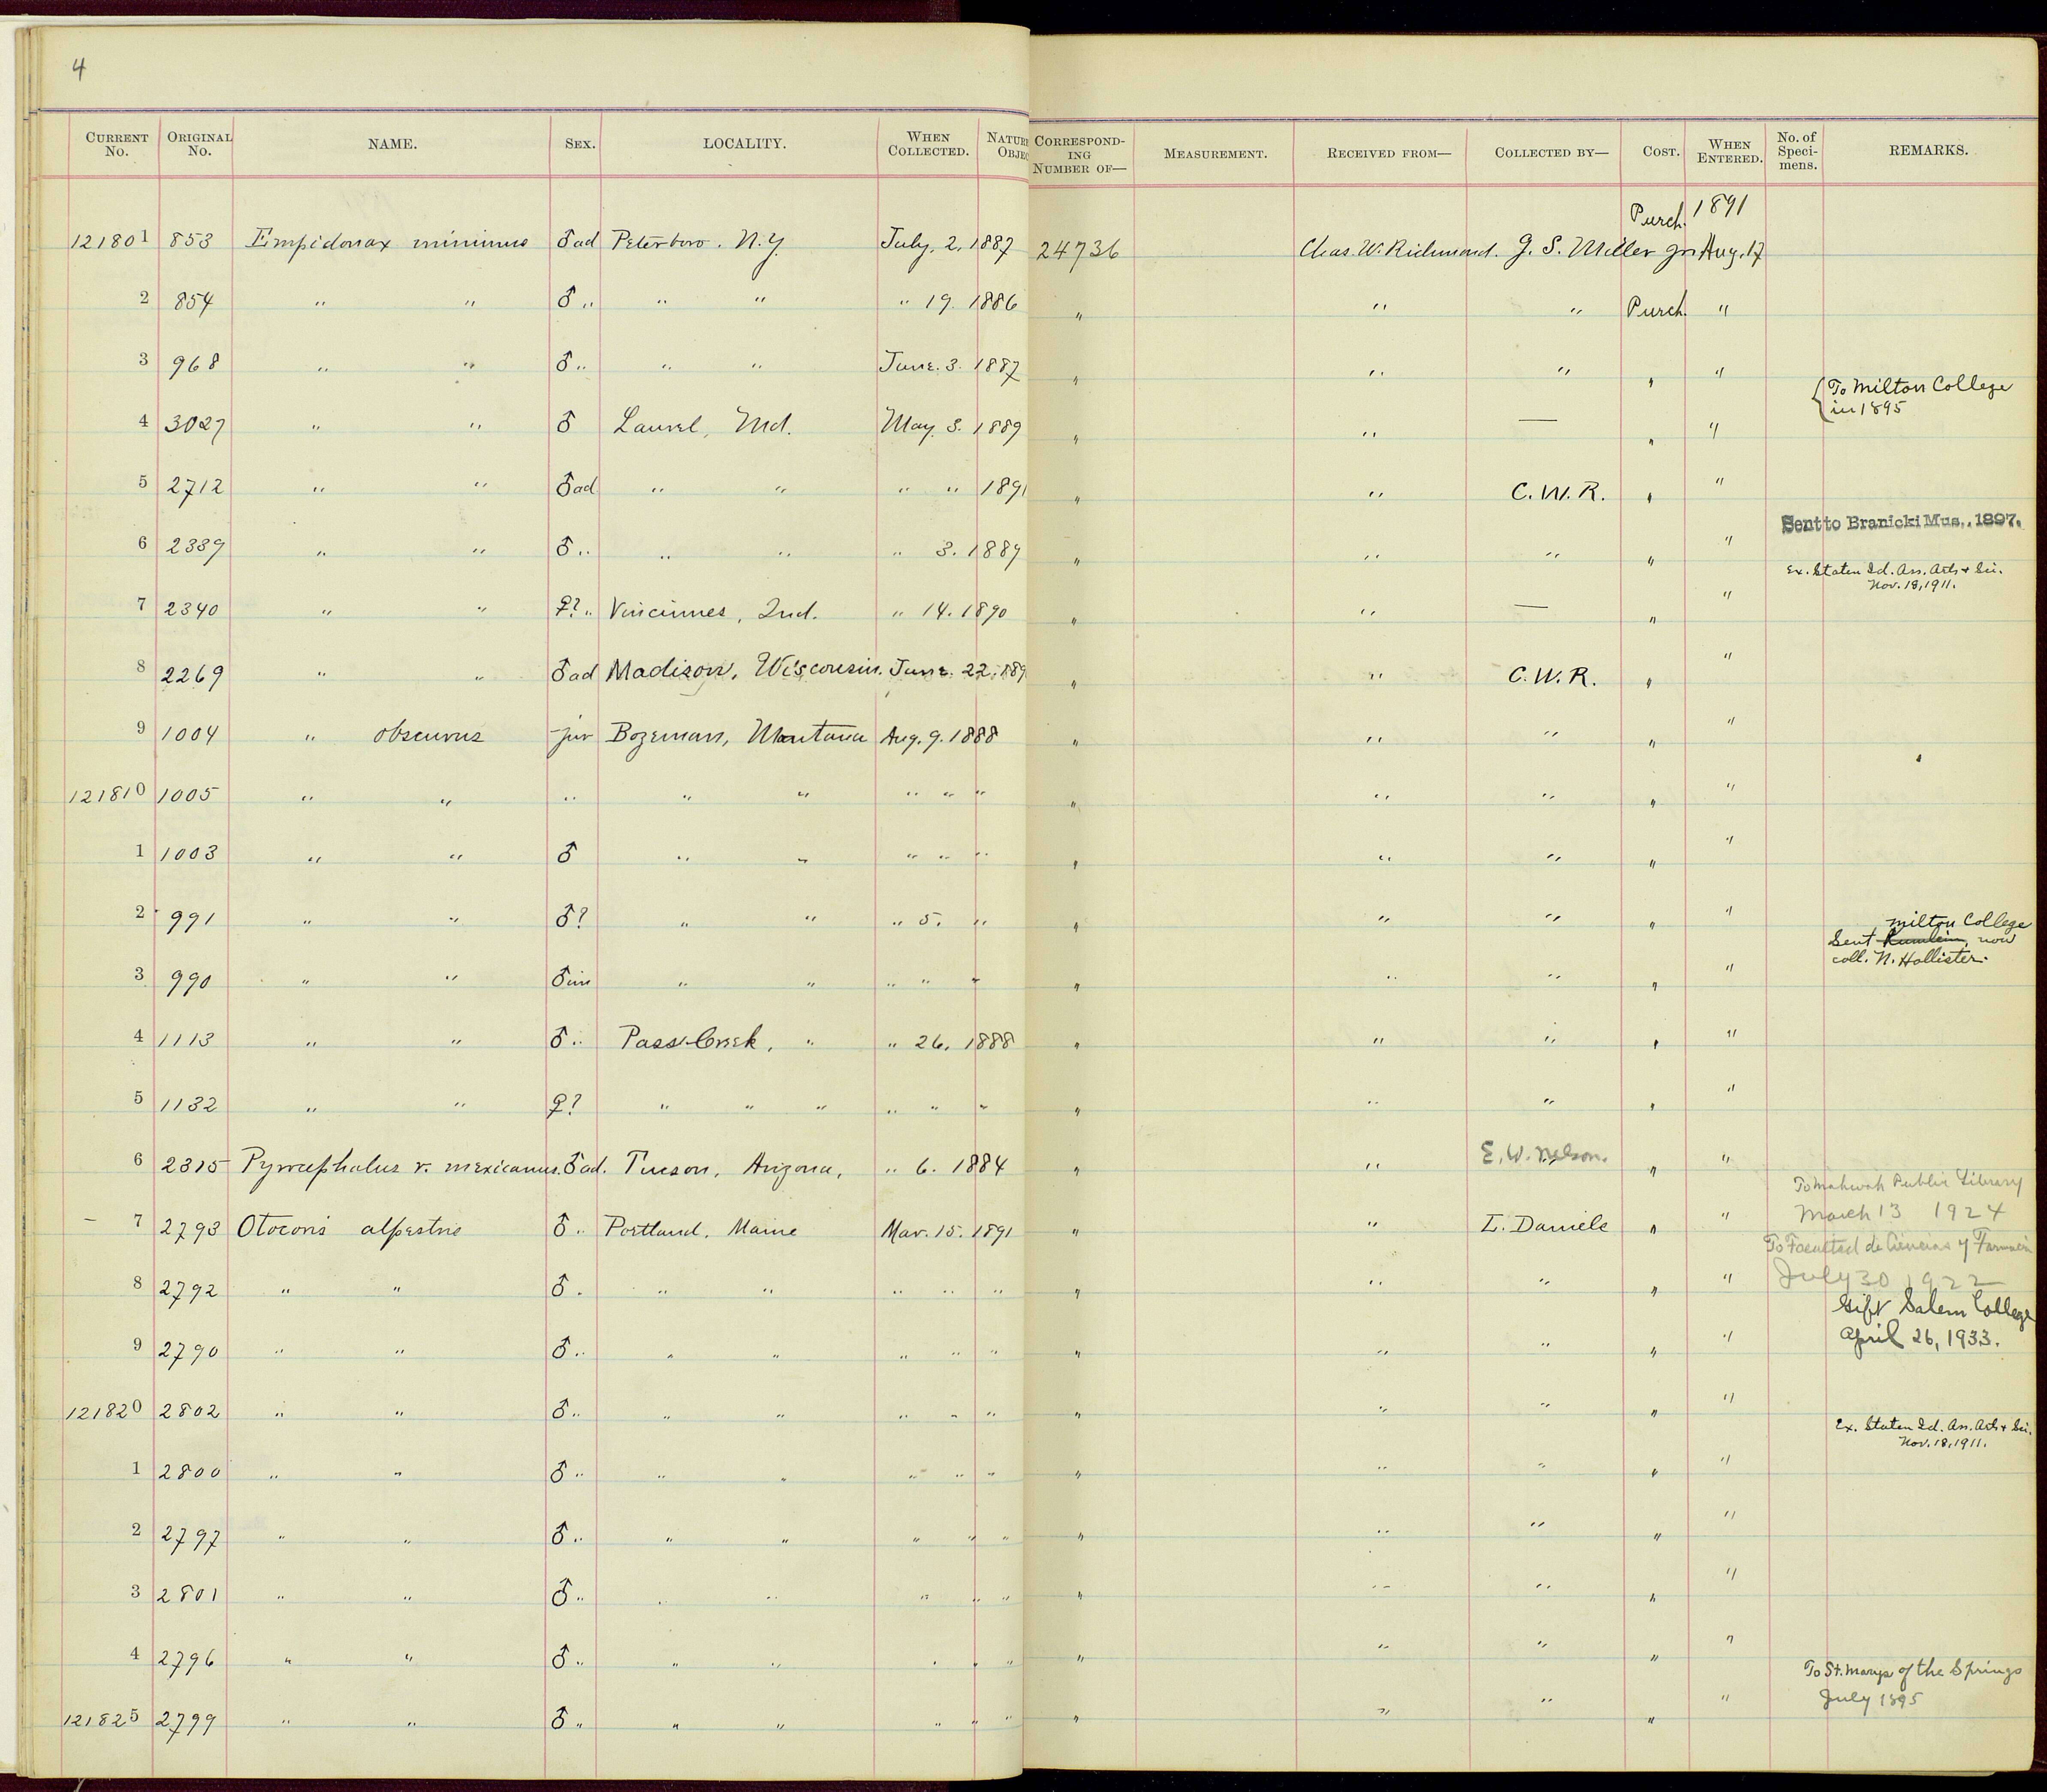 4
CURRENT No. ORIGINAL No. NAME. SEX. LOCALITY. WHEN COLLECTED. NATURE OBJEC CORRESPONDING NUMBER OF— MEASUREMENT. RECEIVED FROM— COLLECTED BY— COST. WHEN ENTERED. No. of Specimens. REMARKS.
121801 853 Empidonax minimus ♂ad Peterboro. N.Y. July. 2. 1887 24736 Chas. W. Richmond. G. S. Miller jr Purch. 1891 Aug. 17
2 854 " " ♂ " " " " 19. 1886 " " " Purch. "
3 968 " " ♂ " " " June. 3. 1887 " " " " "
4 3027 " " ♂ Laurel, Md. May. 3. 1889 " " — " " { To Milton College in 1895
5 2712 " " ♂ad " " " " 1891 " " C. W. R. " "
6 2339 " " ♂ " " " " 3. 1889 " " " " " Sent to Branicki Mus., 1897.
7 2340 " " ♀? " Vincennes, Ind. " 14. 1890 " " — " " Ex. Staten Id. Ass. Arts + Sci. Nov. 18, 1911.
8 2269 " " ♂ad Madison, Wisconsin. June. 22. 189 " " C. W. R. " "
9 1004 " obscurus juv Bozeman, Montana Aug. 9. 1888 " " " " "
121810 1005 " " " " " " " " " " " " "
1 1003 " " ♂ " " " " " " " " " "
2 991 " " ♂? " " " 5. " " " " " "
3 990 " " ♂im " " " " " " " " " " Sent Kumlein, Milton College now coll. N. Hollister.
4 1113 " " ♂ " Pass Creek, " " 26. 1888 " " " " "
5 1132 " " ♀? " " " " " " " " " " "
6 2315 Pyrocephalus r. mexicanus. ♂ad. Tucson, Arizona, " 6. 1884 " " E. W. Nelson. " "
7 2793 Otocoris alpestris ♂ " Portland, Maine Mar. 15. 1891 " " L. Daniels " " To Mahwah Public Library March 13 1924
8 2792 " " ♂ " " " " " " " " " " To Facultad de Ciencias y Farmacia July 30 1922
9 2790 " " ♂ " " " " " " " " " " " Gift Salem College April 26, 1933.
121820 2802 " " ♂ " " " " " " " " " " "
1 2800 " " ♂ " " " " " " " " " " " Ex. Staten Id. Ass. Arts + Sci. Nov. 18, 1911.
2 2797 " " ♂ " " " " " " " " " " "
3 2801 " " ♂ " " " " " " " " " " "
4 2796 " " ♂ " " " " " " " " " " "
121825 2799 " " ♂ " " " " " " " " " " " To St. Marys of the Springs July 1895